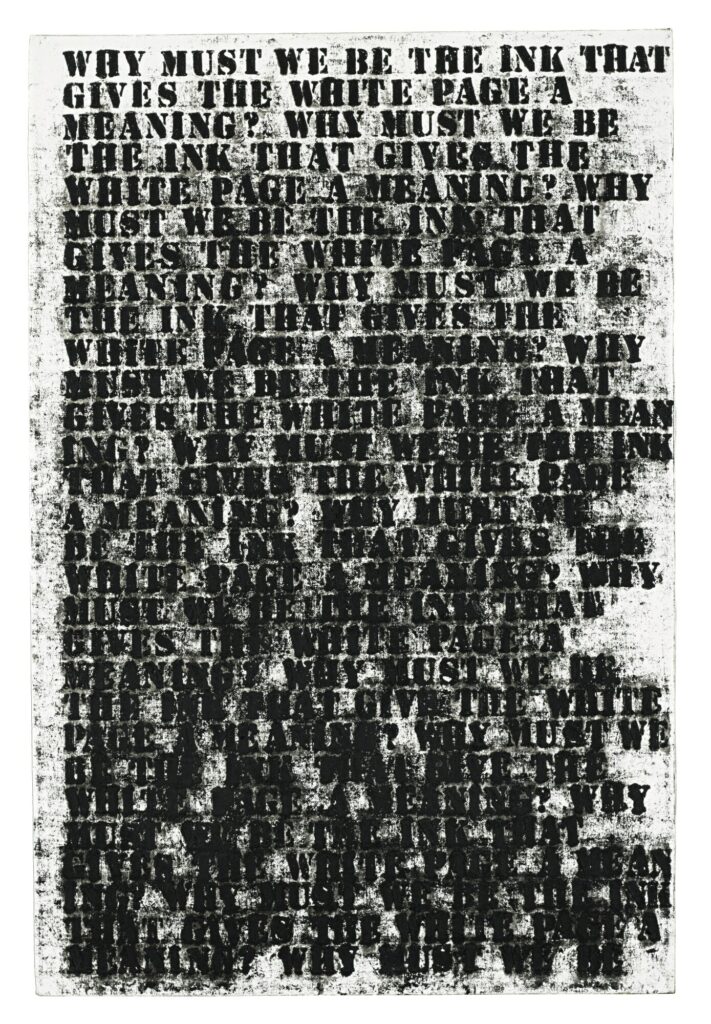 WHY MUST WE BE THE INK THAT
GIVES THE WHITE PAGE A
MEANING? WHY MUST WE BE
THE INK THAT GIVES THE
WHITE PAGE A MEANING? WHY
MUST WE BE THE INK THAT
GIVES THE WHITE PAGE A
MEANING? WHY MUST WE BE
THE INK THAT GIVES THE
WHITE PAGE A MEANING? WHY
MUST WE BE THE INK THAT
GIVES THE WHITE PAGE A MEAN
ING? WHY MUST WE BE THE INK
THAT GIVES THE WHITE PAGE
A MEANING? WHY MUST WE
BE THE INK THAT GIVES THE
WHITE PAGE A MEANING? WHY
MUST WE BE THE INK THAT
GIVES THE WHITE PAGE A
MEANING? WHY MUST WE BE
THE INK THAT GIVE THE WHITE
PAGE A MEANING? WHY MUST WE
BE THE INK THAT GIVE THE
WHITE PAGE A MEANING? WHY
MUST WE BE THE INK THAT
GIVES THE WHITE PAGE A MEAN
ING? WHY MUST WE BE THE INK
THAT GIVES THE WHITE PAGE A
MEANING? WHY MUST WE BE